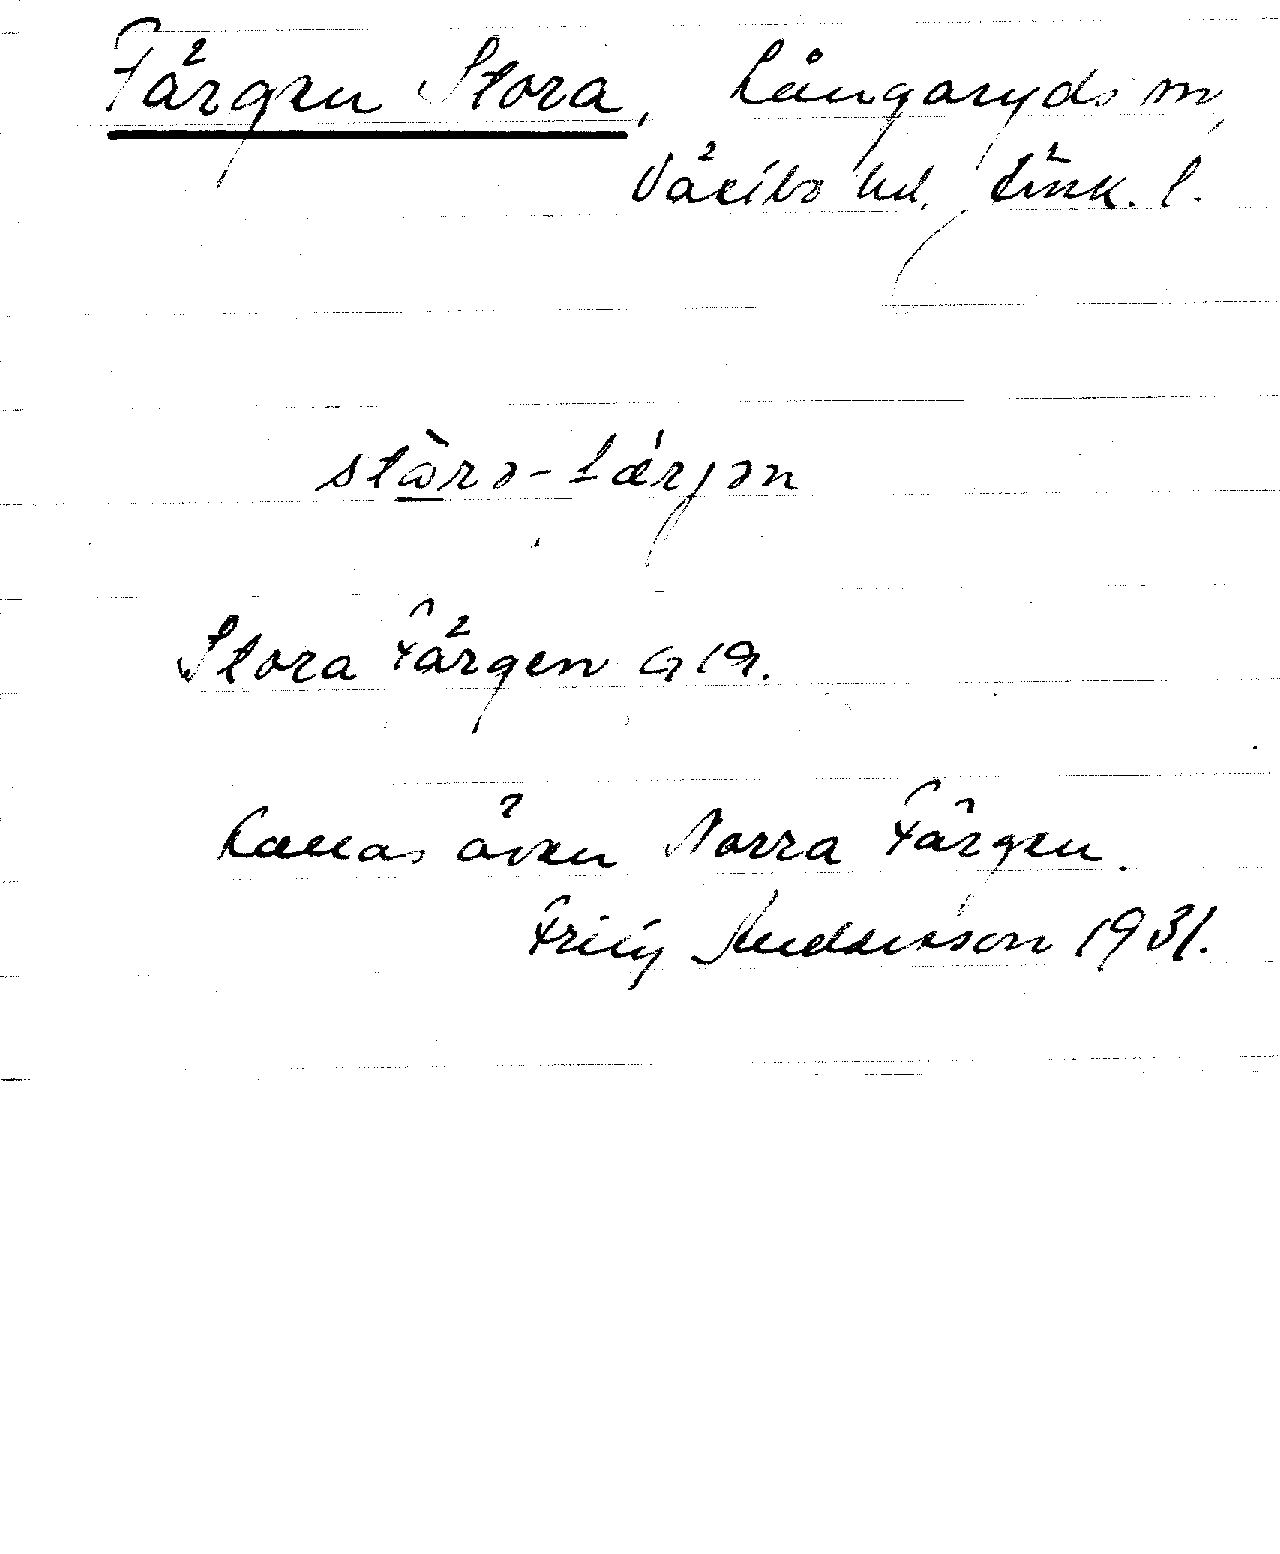 Färgen Stora, Långaryds sn,
Västbo hd, Jönk. l.
stòrə-færjən
Stora Färgen GK.
Kallas även Norra Färgen.
Fritz Andersson 1931.